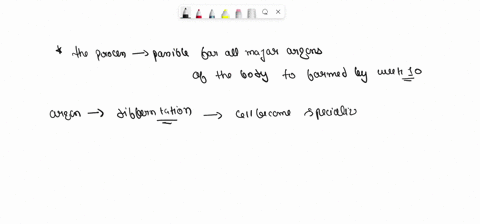 * the procen → possible for all major organs
of the body to formed by week 10
organ → differntation → cell become specializ